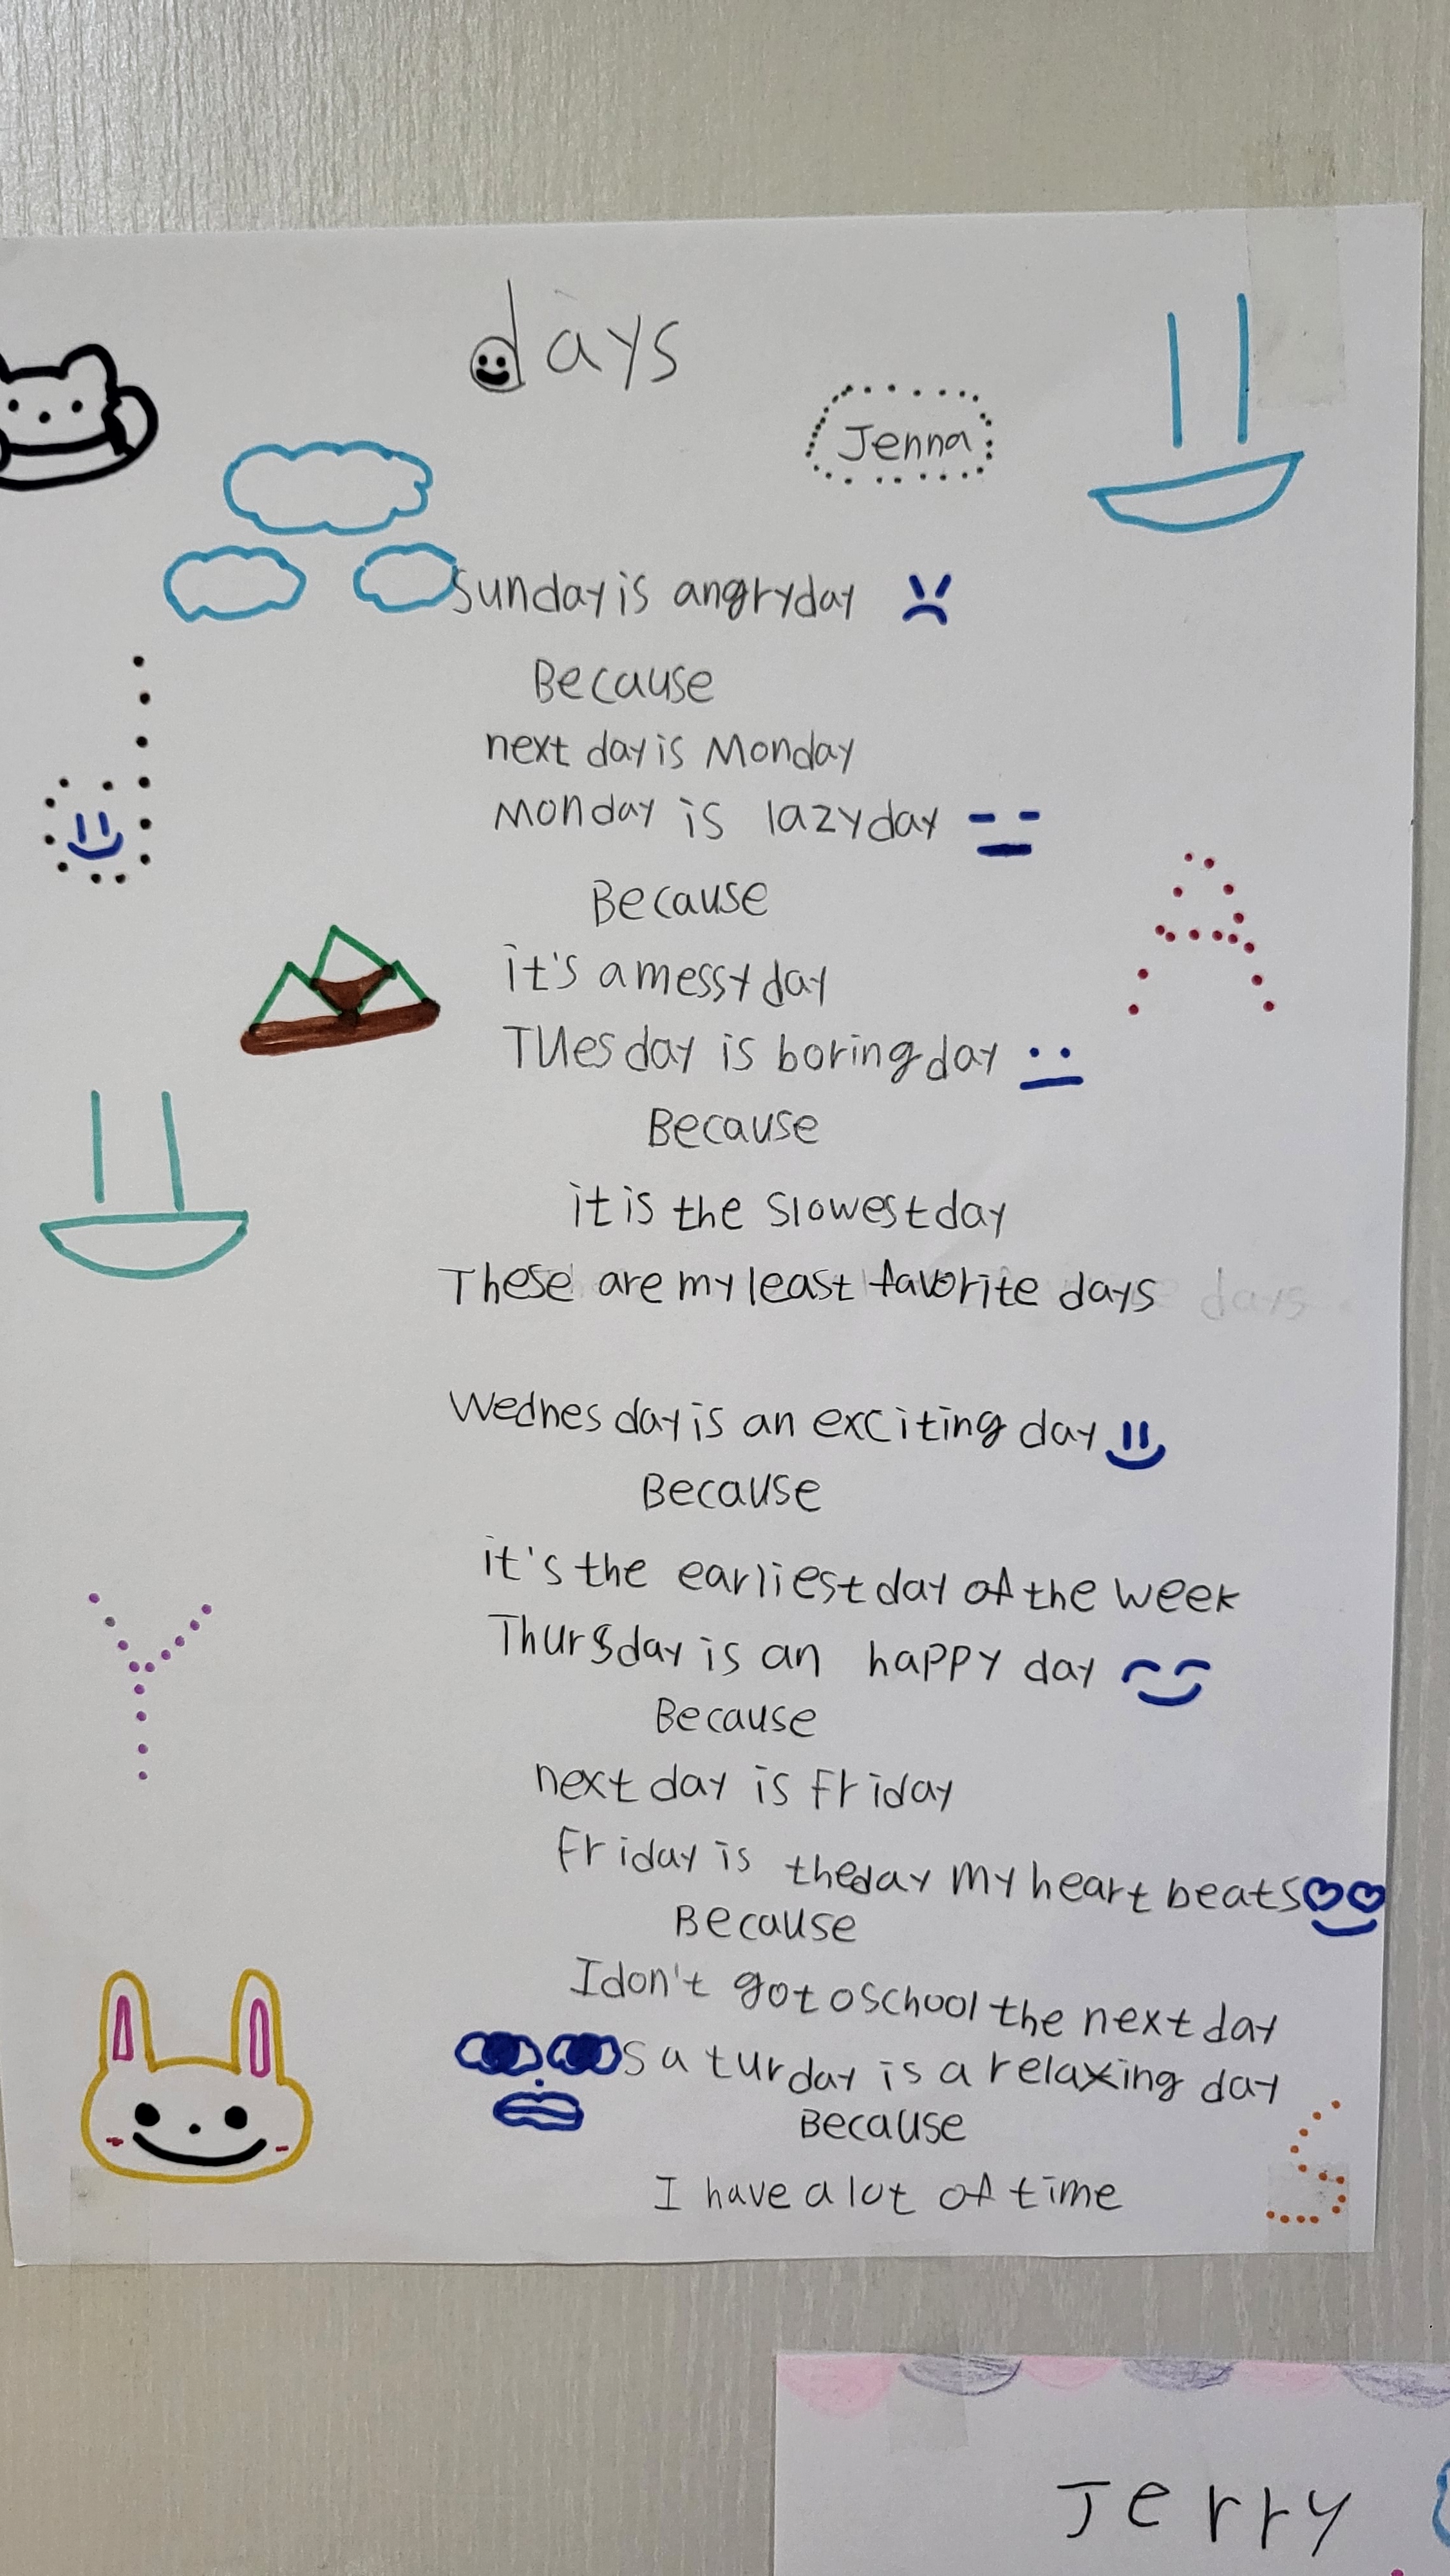 days
Jenna
Sunday is angry day
Because
next day is Monday
Monday is lazy day
Because
it's a messy day
Tuesday is boring day
Because
it is the slowest day
These are my least favorite days
days
Wednesday is an exciting day
Because
it's the earliest day of the week
Thursday is an happy day
Because
next day is Friday
Friday is the day my heart beats
Because
I don't go to school the next day
Saturday is a relaxing day
Because
I have a lot of time
d
A
Y
S
Jerry